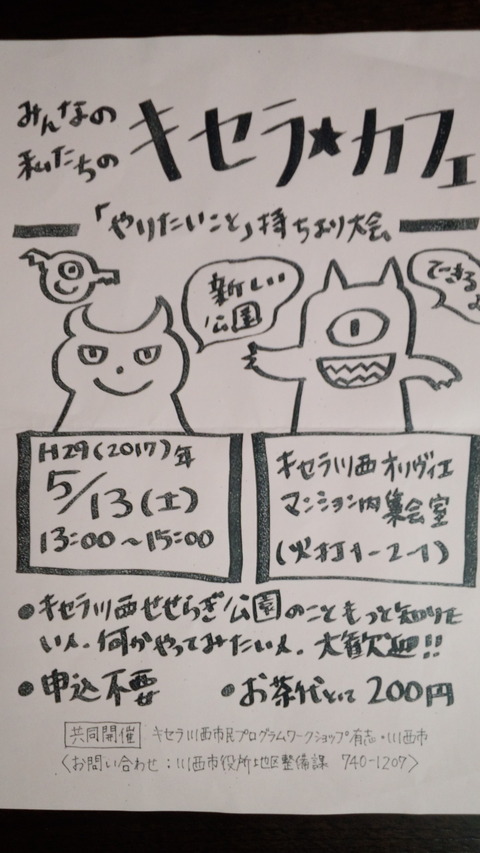 みんなの
私たちの
キセラ★カフェ
「やりたいこと」持ちより大会
新しい
公園
できる
H29(2017)年
5/13(土)
13:00～15:00
キセラ川西オリヴィエ
マンション内集会室
(火打1-2-1)
●キセラ川西せせらぎ公園のこともっと知りた
い人、何かやってみたい人、大歓迎!!
●申込不要
●お茶代として200円
共同開催 キセラ川西市民プログラムワークショップ有志・川西市
〈お問い合わせ：川西市役所地区整備課 740-1207〉